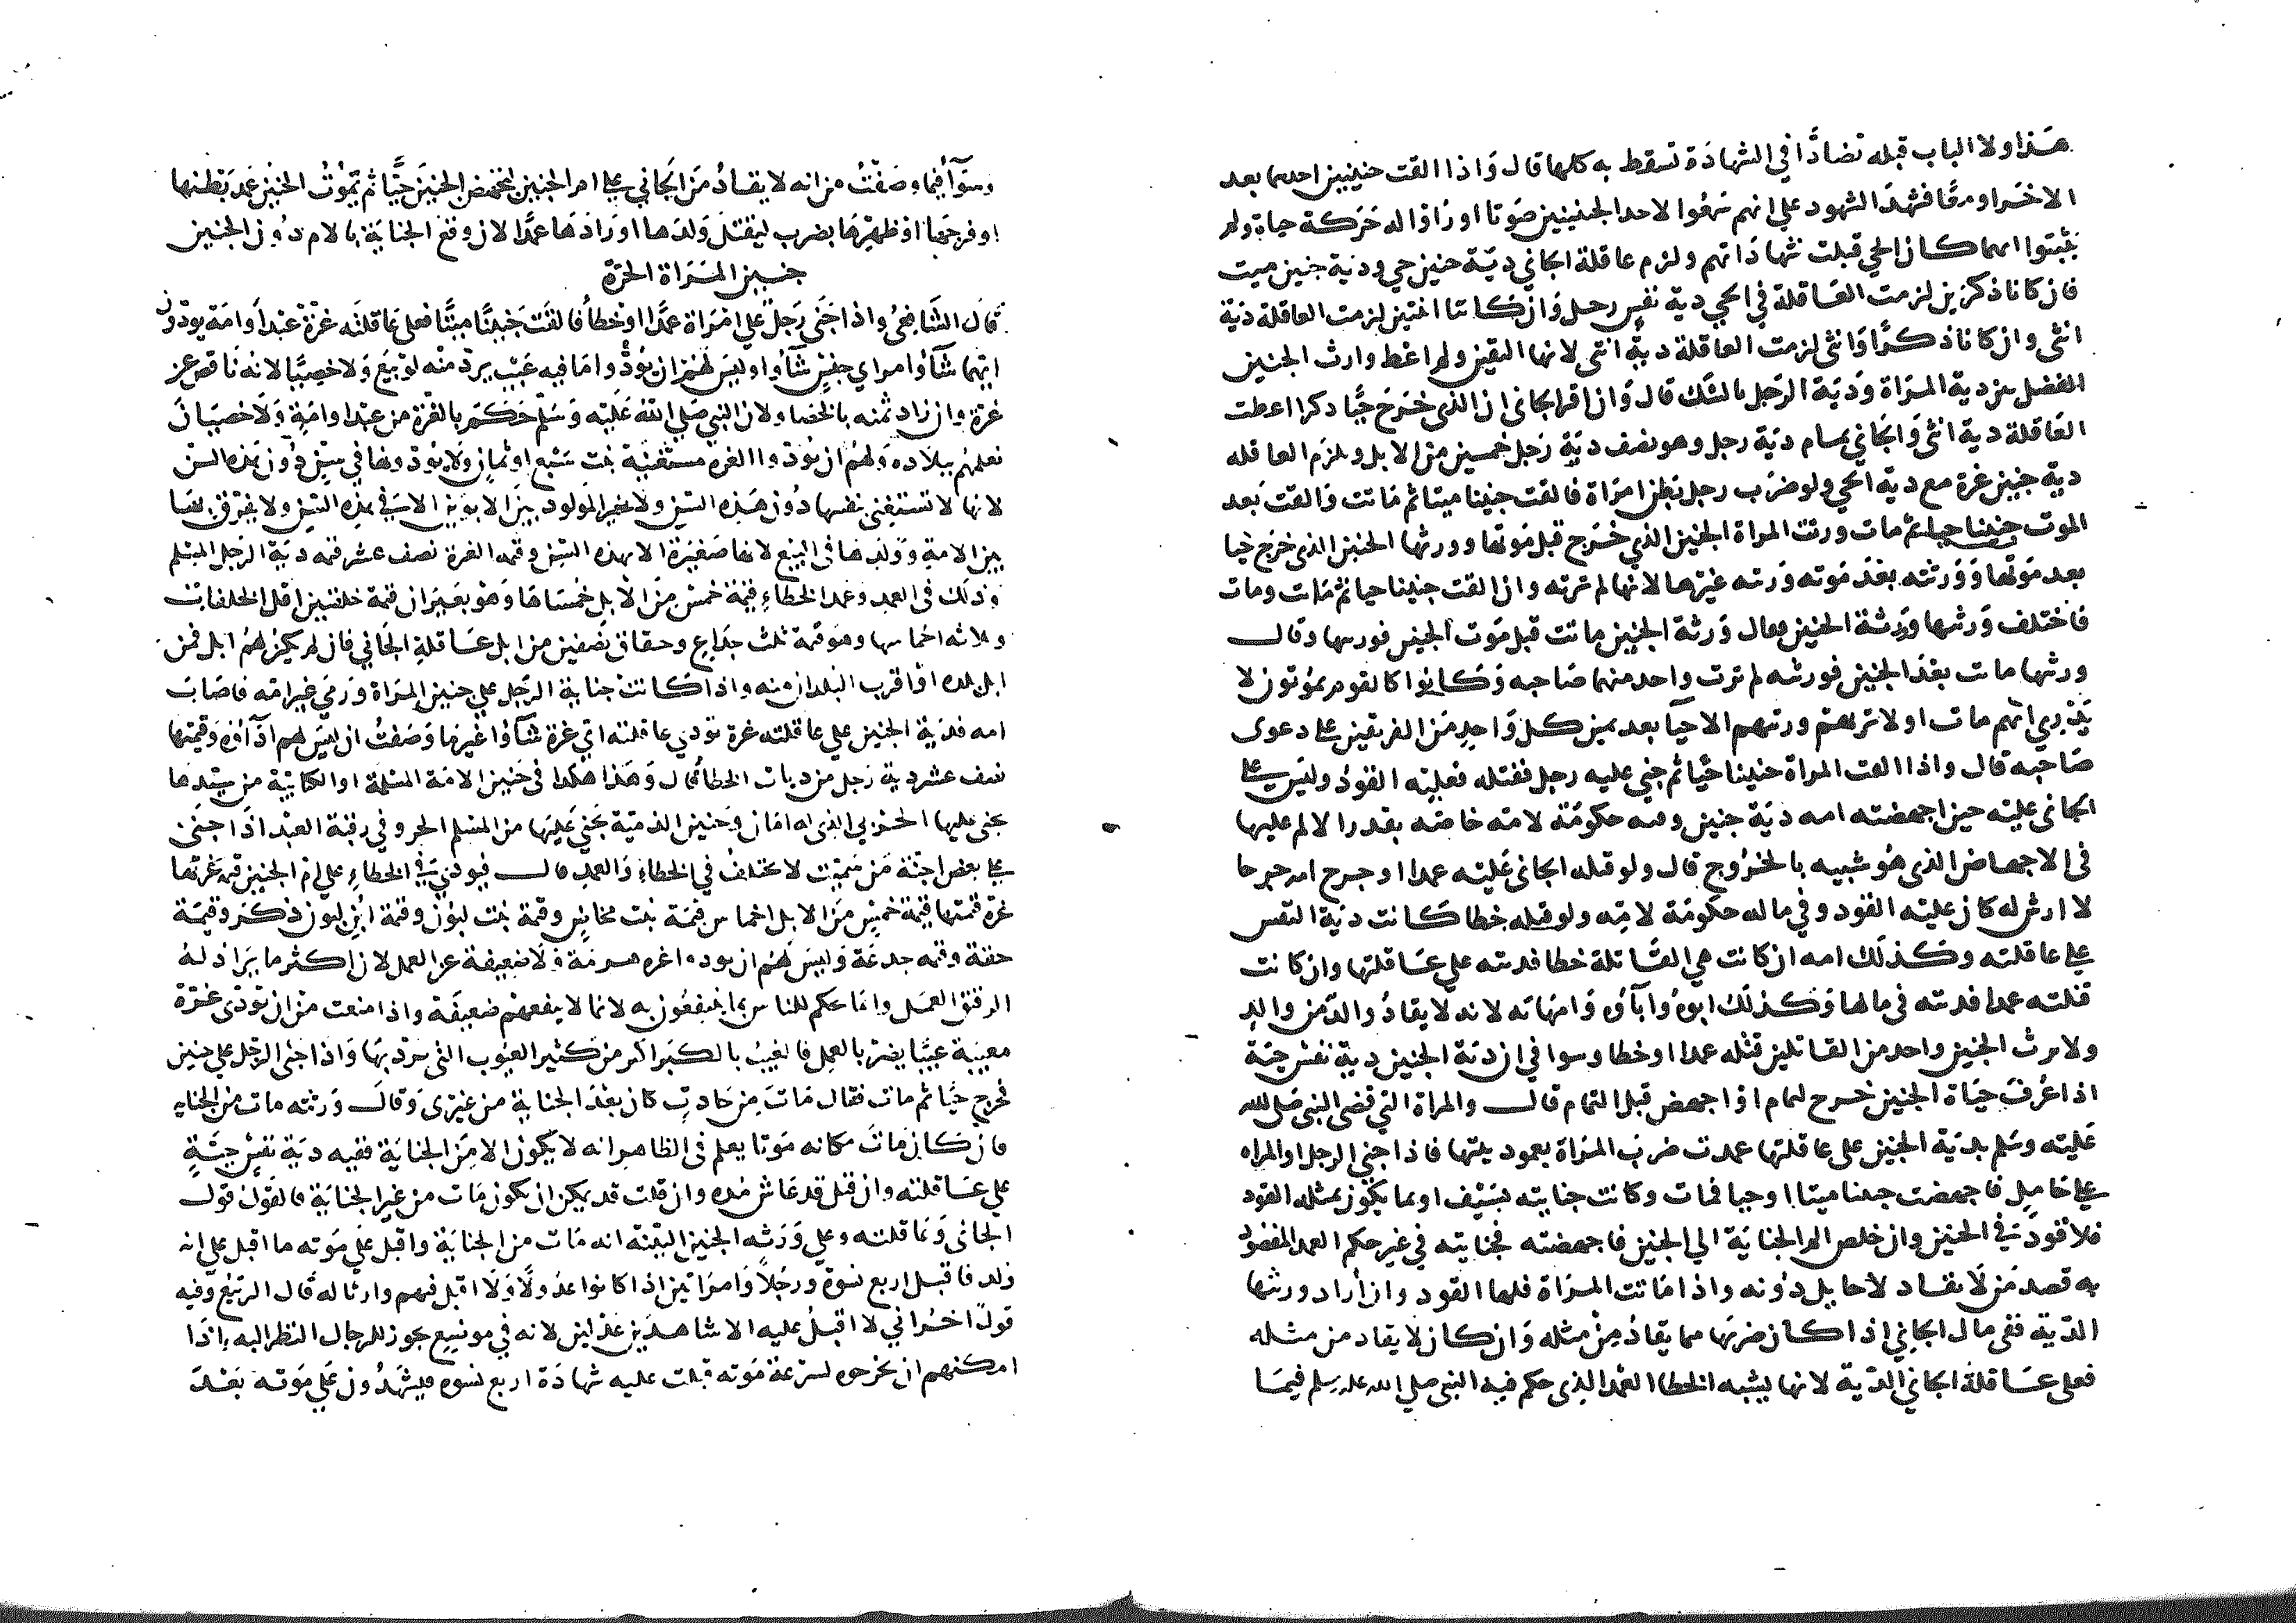 هذا ولا الباب قبله تضادًا في الشهادة تسقط به كلها قال وَاذا القت جنينين احدهما بعد
الاخَر او معًا فشهدَ الشهود على انهم سَمعُوا لاحد الجنينين صَوتا اورَاوا له حَرَكة حياة ولم
يثبتوا ايهما كان الحي قبلت شهاداتهم ولزم عاقلة الجاني ديَة جنين حي ودية جنين ميت
فان كانا ذكرَين لزمت العَاقلة في الحي دية نفس رجل وَان كانتا انثيين لزمت العاقلة دية
انثى وان كانا ذكرًا وَانثى لزمت العاقلة دية انثى لانها اليقين ولم اعط وارث الجنين
الفضل بين دية المرَاة وَديَة الرَجل بالشك قال وَان اقر الجاني ان الذي خرَج حيًّا ذكرا اعطت
العَاقلة دية انثى وَالجاني تمام ديَة رجل وهو نصف ديَة رَجل خمسين من الابل ويلزَم العاقله
دية جنين غرة مع دية الحي ولو ضرَب رجل بَطن امرَاة فالقت جنينا ميتا ثم مَاتت وَالقت بَعد
الموت جنينا حيا ثم مات ورثت المراة الجنين الذي خَرَج قبل مَوتها وورثها الجنين الذي خرج حيا
بعد مَوتها وَوَرثته بعدَ مَوته وَرثه غيرَها لانها لم ترثه وان القت جنينا حيا ثم مَات وماتت
فاختلف وَرثتها وَورَثة الجنين فقال وَرثة الجنين ماتت قبل مَوت الجنين فورثها وقال
ورثتها ماتت بعدَ الجنين فورثته لم ترث واحد منهما صَاحبه وَكانوا كالقوم يمُوتون لا
يُدرى ايهم مات اولا ترثهم ورثتهم الاحيآ بعد يمين كل وَاحدٍ مَن الفريقين على دعوى
صَاحبه قال واذا القت المراة جنينا حيًّا ثم جنى عليه رجل فقتله فعليه القوَدُ وليس على
الجاني عليه حين اجهضته امه ديَة جنين وفيه حكومَة لامه خاصّه بقدر الالم عليها
في الاجهاض الذي هُو شبيه بالخرُوج قال ولو قتله الجاني عَليه عمدا اوجرح امه جرحا
لا ارش له كان عليه القود وفي ماله حكومَة لامِّه ولو قتله خطا كانت ديَة النفس
على عاقلته وكذلك امه ان كانت هي القاتلة خطا فديته على عَاقلتها وان كانت
قتلته عمدا فديته في مالها وَكذلك ابوهُ وآبآؤه وَامهَاته لانه لا يقادُ والد من ولد
ولا يرث الجنين واحد من القاتلين قتله عمدا او خطا وسوا في ان ديَة الجنين دية نفس حيَة
اذا عُرفَ حيَاة الجنين خرج لتمام اوْ اجهض قبل التمام قال والمراة التي قضى النبي صَلى الله
عَليه وسَلم بديَة الجنين على عاقلتها عمدت ضربَ المرَاة بعمود بيتها فاذا جنى الرجل او المراه
على حَامِل فاجهضت جنينا ميتا او حيا فمات وكانت جنايته بسَيْف او بما يكون بمثله القود
فلا قودَ في الجنين وان خلص الم الجنايَة الى الجنين فاجهضته فجنايته في غير حكم العمد المقصُود
به قصد مَن لا يقاد لا حايل دُونه واذا مَاتت المرَاة فلها القود وان أراد ورثتها
الدّية ففي مال الجاني اذا كان ضربَها مما يقادُ مِنْ مثله وَان كان لا يقاد من مثله
فعلى عَاقلة الجاني الدّية لانها يشبه الخطا العمد الذي حكم فيه النبي صلى الله عليه وسلم فيما
وسَوآ فيما وصَفْتُ من انه لا يقادُ مَن الجاني على ام الجنين لمجهض الجنين حيًّا ثم يمُوتُ الجنين عمدَ بَطنها
او فرجهَا اوْ ظهرَها بضرب ليَقتل وَلدَها اوْ رَادَهَا عمدًا لان وقعَ الجناية بالام دُون الجنين
جنين المَرَاة الحرّة
قالَ الشّافعيُ واذا جَنَى رَجلٌ على امْرَاة عمدًا او خطأ فالقت جَنينًا ميتًا فعلى عَاقلته غرّة عَبْدا وامَة يودّون
ايّهما شآؤا من اي جنسٍ شآؤا وليسَ لهم ان يُودُّوا مَا فيه عَيْب يردّ منْه لوْ بيع وَلا خصيًّا لانه نَاقص عن
غرّة وان زاد ثمنه بالخصا ولان النبي صَلى الله عَليه وَسَلم حَكم بالغرّة من عَبْد او امَةٍ وَلا خصيَان
نعلمهُم ببلَاده وَلهم ان يُودّوا الغرة مستغنية بنت سَبْع اوثمانٍ ولا يُودّونها في سِنّ دُون هَذه السن
لانها لا تستغني بنفسها دُون هَذه السّن ولا يخير المولود بين الابوَين الا في هذه السّن ولا يفرّق بَينها
بين الامة وَولدها في البَيْع لانها صَغيرَة الا بهذه السّن وقيمه الغرة نصف عشر قيمه ديَة الرّجل المسْلم
وَذلك في العمد وعمد الخطاءِ قيمة خمسٍ مَن الابل خمسَاهَا وَهوَ بعيرَان قيمة خلفتين اقل الخلفات
وثلاثه اخماسها وهوَ قيمة ثلث جذاع وحقاق نصفين من ابل عَاقلةِ الجَاني فان لم يكن لهُم ابل فمن
ابل بلده اوْ اقرب البلدان منه واذا كانتْ جناية الرّجل على جنين المرَاة ورَمىَ غيرَ امّه فاصَابَ
امه فديَة الجنين على عاقلته غرة تودي عاقلته ايّ غرة شآؤا غيرَما وَصَفتُ ان ليسَ لهم اداؤه وَقيمتها
نصف عشر دية رَجل من ديات الخطأ قال وَهَذا هكذا في جَنين الامَة المسْلمَة او الكتابيّة من سَيّدها
يجني عليها الحَربي الذي له امَان وجَنين الذميّة يجني عَليَها من المسْلم الحر وفي رقبة العبْد اذا جنَى
على بعض اجنّة مَن سَمّيْت لا يختلفُ في الخطاءِ وَالعمدِ قال فيودّي في الخطاءِ على ام الجنين قيمة غرّتها
غرّة قيمتها قيمة خمسٍ مَن الابل اخماس قيمة بنت مخاضٍ وقيمة بنت لبُون وقيمة ابْن لبون ذكر وقيمَة
حقة وقيمه جدعَة وَليسَ لهُم ان يودوا غره هرمَة وَلا ضعيفَة عن العمل لان اكثر ما يرَاد له
الرقيق العمَل وانما حكم للناس بما ينتفعُون به لا بما لا ينفعهم ضعيفَة واذا منعت من ان تؤدّى غرّة
معيبَة عيبًا يضرّ بالعمل فالعيبُ بالكبَر اكثر من كثير العيُوب التي تردّ بهَا وَاذا جنى الرّجل على جنين
فخرج حيًّا ثم مات فقال مَاتَ مِن حَادث كان بعْدَ الجناية من غيرى وَقالَ وَرثته مات من الجنايه
فان كان مَاتَ مكانه مَوتا يعلم في الظاهر انه لا يكون الا مَن الجنايَة ففيه ديَة نفسٍ حيّةٍ
على عَاقلته وان قيل قد عَاش مُده وان قلت قد يمكن ان يكون مَات من غير الجنايَة فالقول قول
الجاني وَعَاقلته وعلى وَرَثه الجنين البيّنة انه مَات من الجنايَة واقبل على مَوته ما اقبل على انه
ولد فاقبل اربع نسوة ورجُلاً وَامرَاتين اذا كانوا عدُولًا وَلا اقبل فيهم وارثا له قال الرّبيعُ وفيه
قولٌ اخَر اني لا اقبلُ عليه الا شاهدَين عدْلين لانه في موضِعٍ يجوز للرجال النظر اليه اذَا
امكنهم ان يخرجوه لسرْعَة مَوته قبلت عليه شهادَة اربع نسوه فيشهَدُون عَلى مَوته بَعْدَ